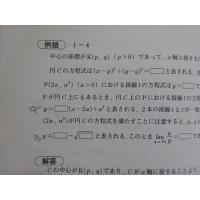 例題 1-4
中心の座標がK(p, q) (p>0) であって, x軸と接する
円Cの方程式は(x-p)²+(y-q)²=□と表される.
P(2a, a²) (a>0) における接線lの方程式は
Pが円C上にもあるとき, 円C上のPにおける接線の方
y=□(x-2a)+a²と表される. 2本の接線
(2a, a²)が円Cの方程式を満たすことに注意すると,
q=□-√□と表される. このとき lim
解答
Cの中心がK(p, q)であり, Cがx軸に接することより